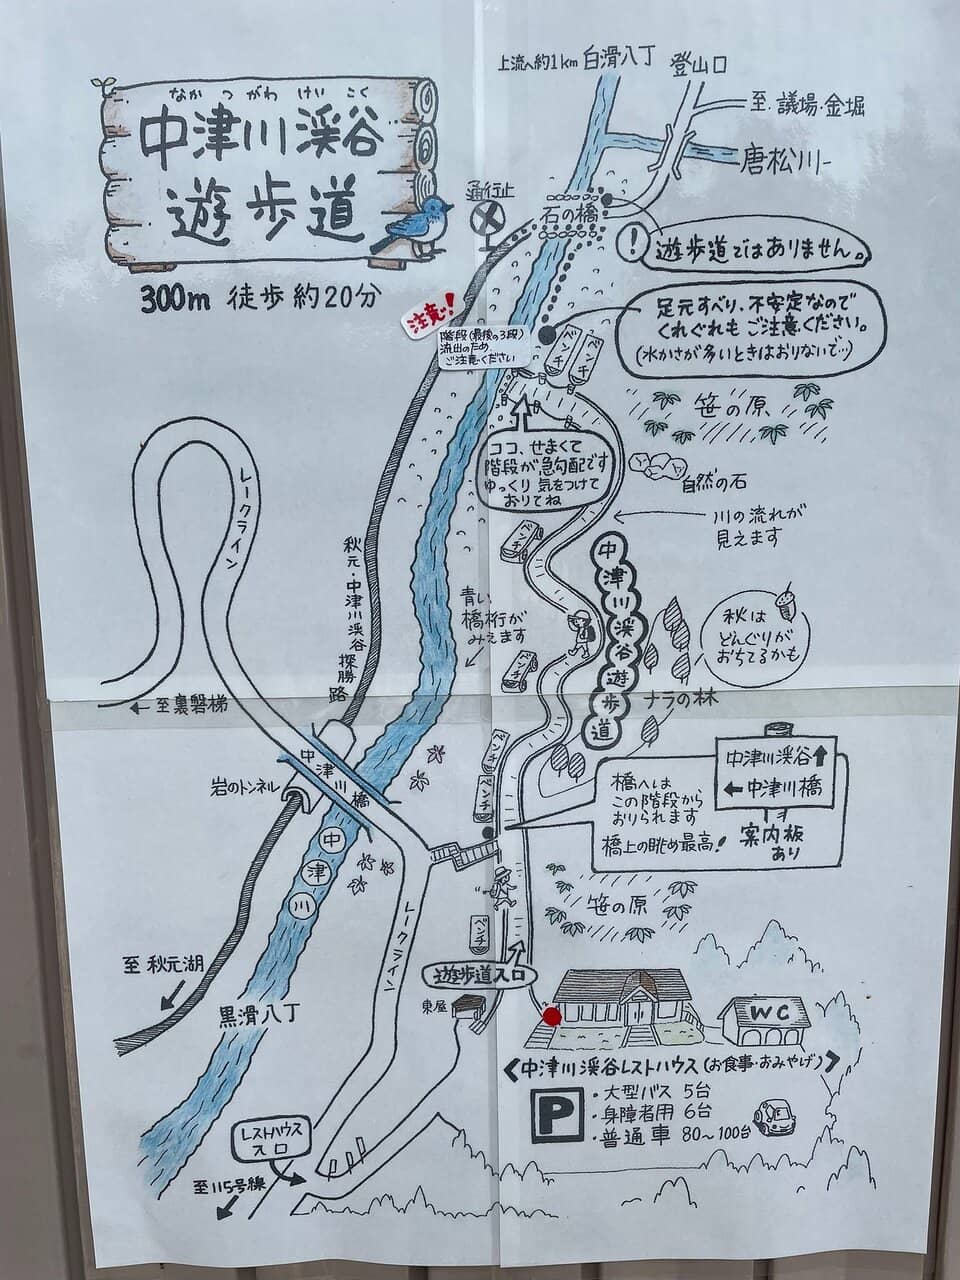 上流へ約1km 白滑八丁
登山口
至.議場・金堀
唐松川
なかつがわけいこく
中津川渓谷
遊歩道
300m 徒歩約20分
通行止
石の橋
!
遊歩道ではありません。
足元すべり、不安定なので
くれぐれもご注意ください。
(水かさが多いときはおりないで…)
注意!
階段(最後の3段)
流出のため、
ご注意ください
ベンチ
ベンチ
笹の原
ココ、せまくて
階段が急勾配です
ゆっくり気をつけて
おりてね
自然の石
川の流れが
見えます
レークライン
ベンチ
秋元・中津川渓谷探勝路
中津川渓谷遊歩道
青い
橋桁が
みえます
秋は
どんぐりが
おちてるかも
ベンチ
ナラの林
←至裏磐梯
ベンチ
ベンチ
中津川橋
岩のトンネル
橋へは
この階段から
おりられます
橋上の眺め最高!
中津川渓谷↑
←中津川橋
案内板
あり
中津川
笹の原
レークライン
ベンチ
至秋元湖
遊歩道入口
東屋
黒滑八丁
WC
<中津川渓谷レストハウス(お食事・おみやげ)>
P
・大型バス 5台
・身障者用 6台
・普通車 80~100台
レストハウス
入口
至115号線